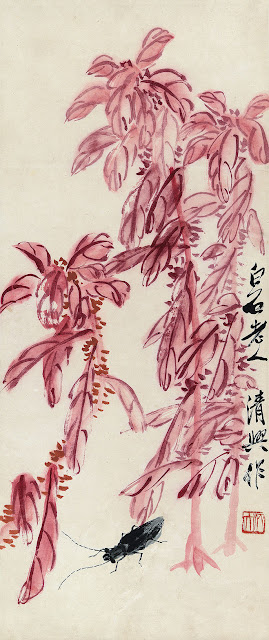 白石老人清興作